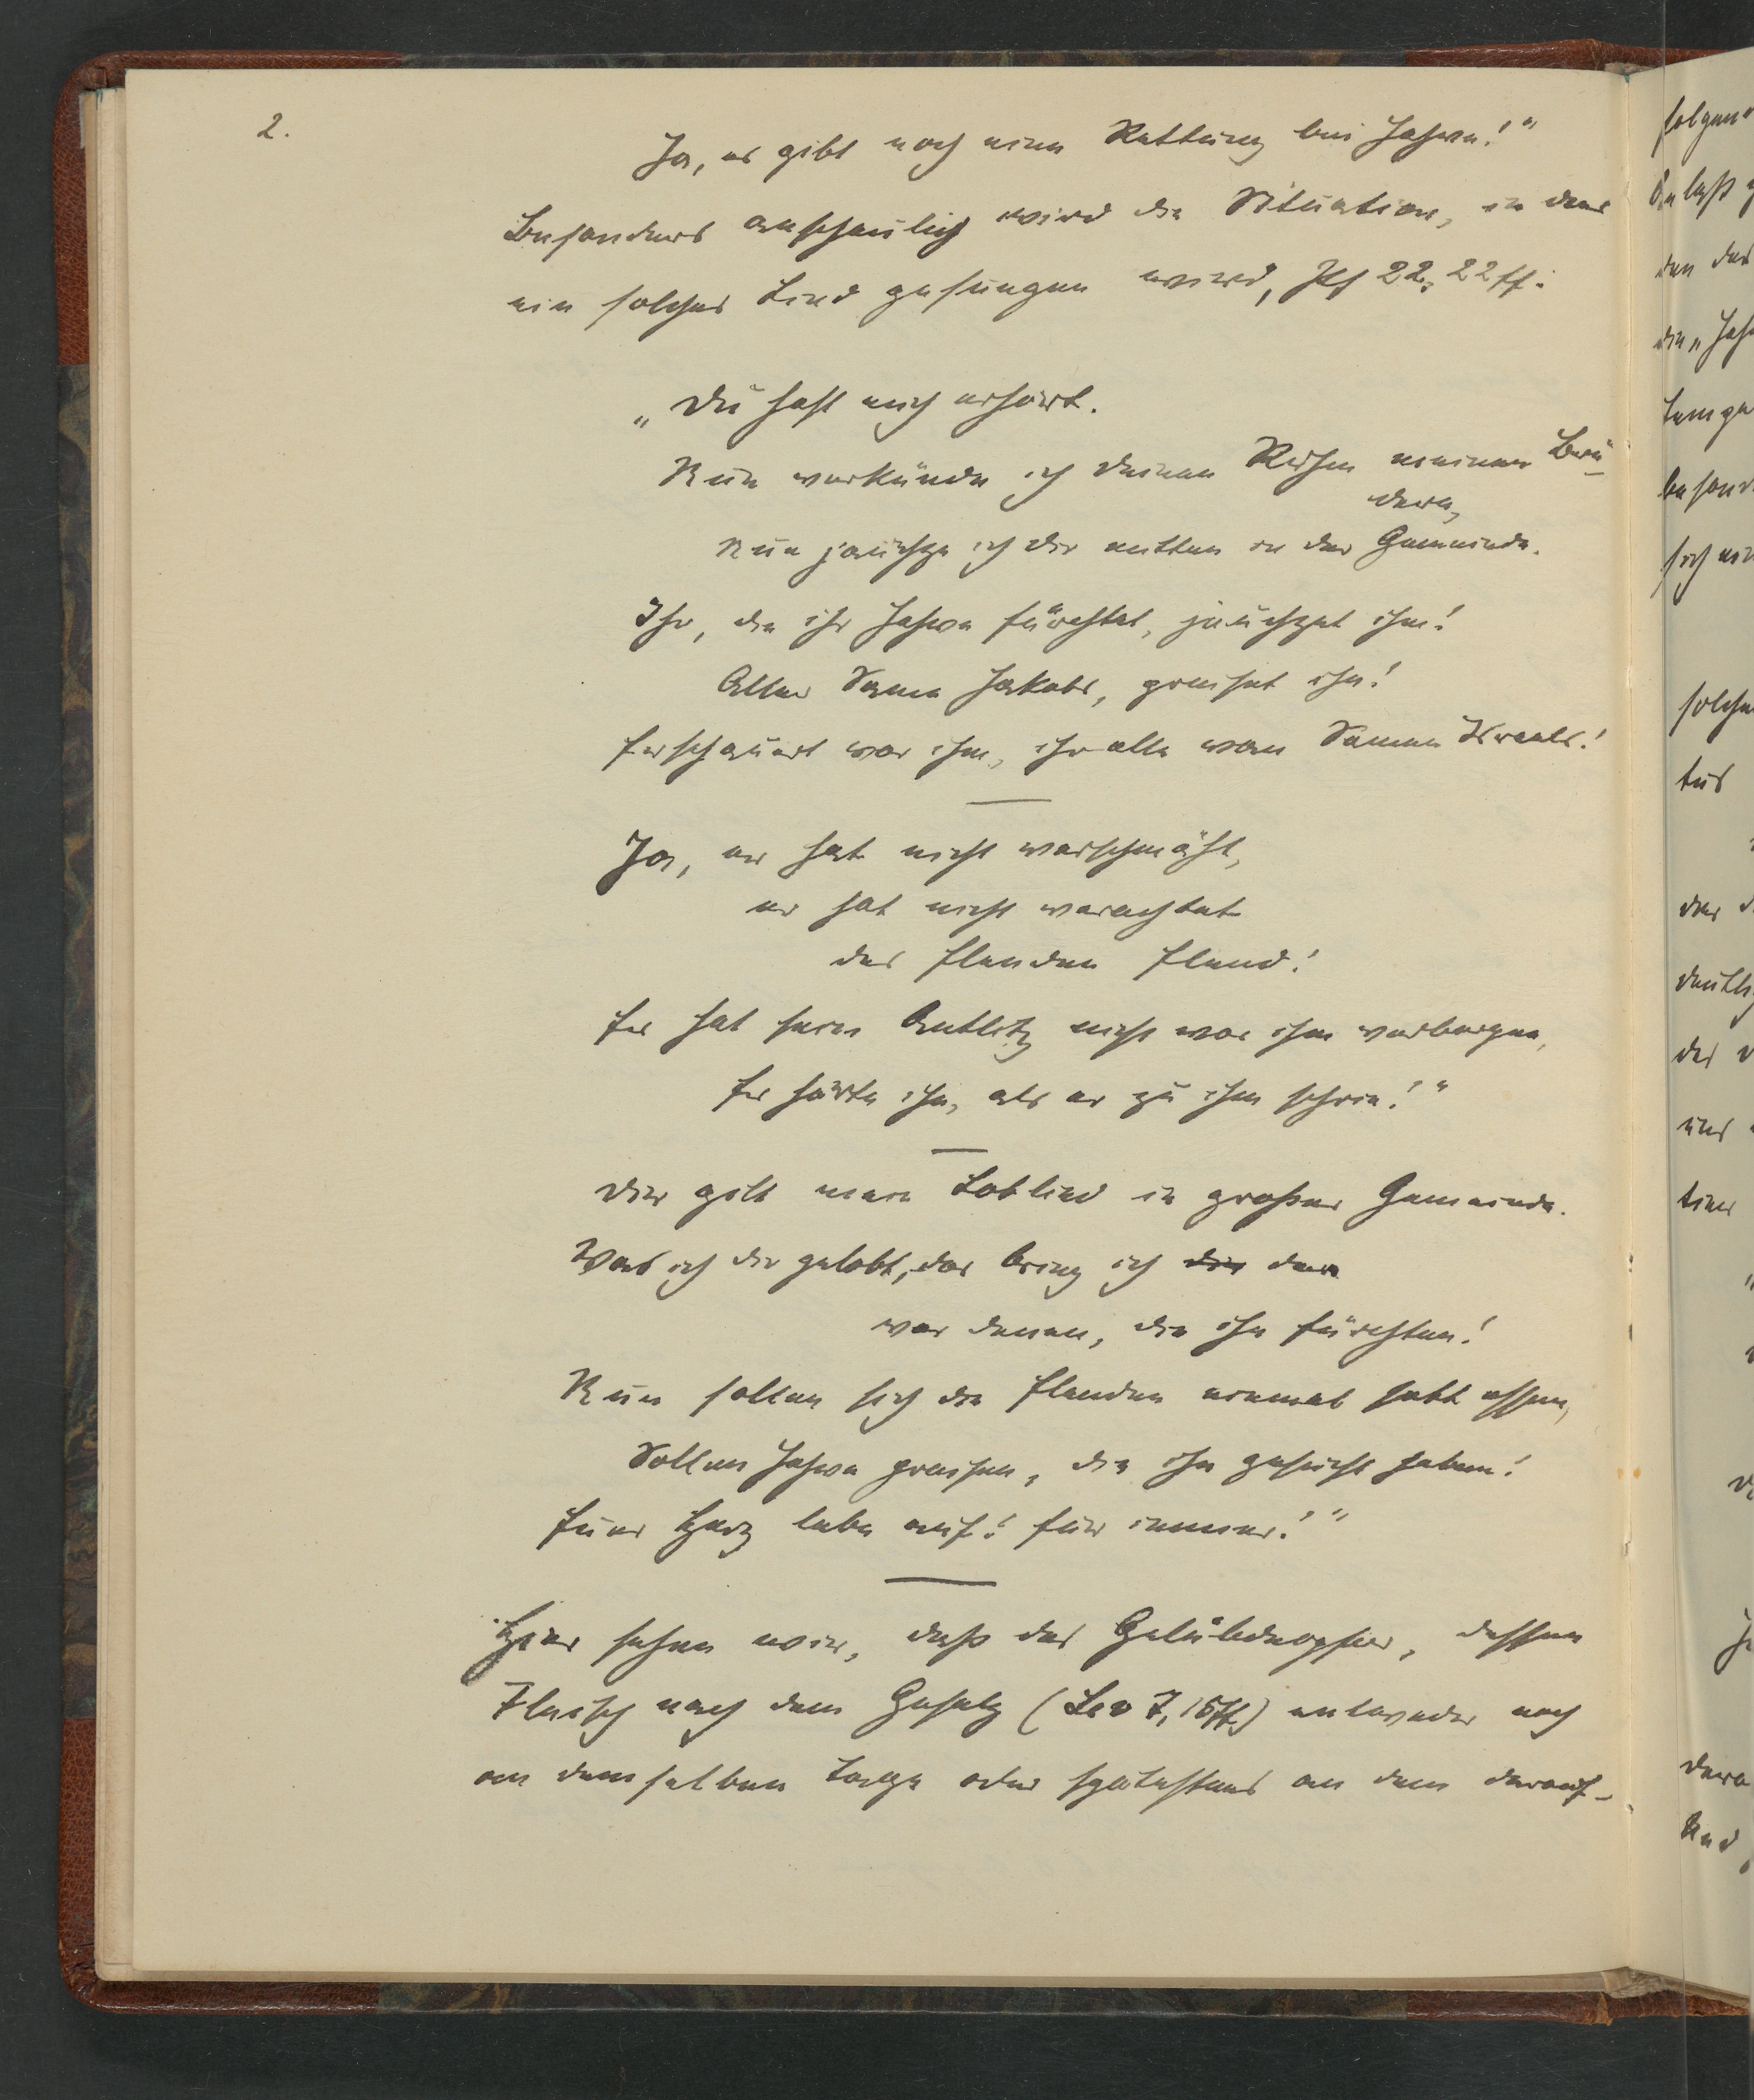 2.
Ja, es gibt noch eine Rettung bei Jahwe!"
Besonders anschaulich wird die Situation, in der
ein solches Lied gesungen wird, Ps 22, 22 ff.:
„Du hast mich erhört.
Nun verkünde ich deinen Ruhm meinen Brü-
dern,
Nun jauchze ich dir mitten in der Gemeinde.
Ihr, die ihr Jahwe fürchtet, jauchzet ihm!
Aller Same Jakobs, preiset ihn!
Erschauert vor ihm, ihr alle vom Samen Israels!
Ja, er hat nicht verschmäht,
er hat nicht verachtet
des Elenden Elend!
Er hat sein Antlitz nicht vor ihm verborgen,
Er hörte ihn, als er zu ihm schrie!"
Dir gilt mein Loblied in großer Gemeinde.
Was ich dir gelobt, das bring ich dir dar
vor denen, die ihn fürchten!
Nun sollen sich die Elenden einmal satt essen,
Sollen Jahwe preisen, die ihn gesucht haben!
Euer Herz lebe auf! für immer!"
Hier sehen wir, daß das Gelübdeopfer, dessen
Fleisch nach dem Gesetz (Lev 7, 15ff.) entweder noch
an demselben Tage oder spätestens an dem darauf-
folgen
Anlaß
den des
die „Jah
besond
sich ein
solche
der d
deutli
des
und